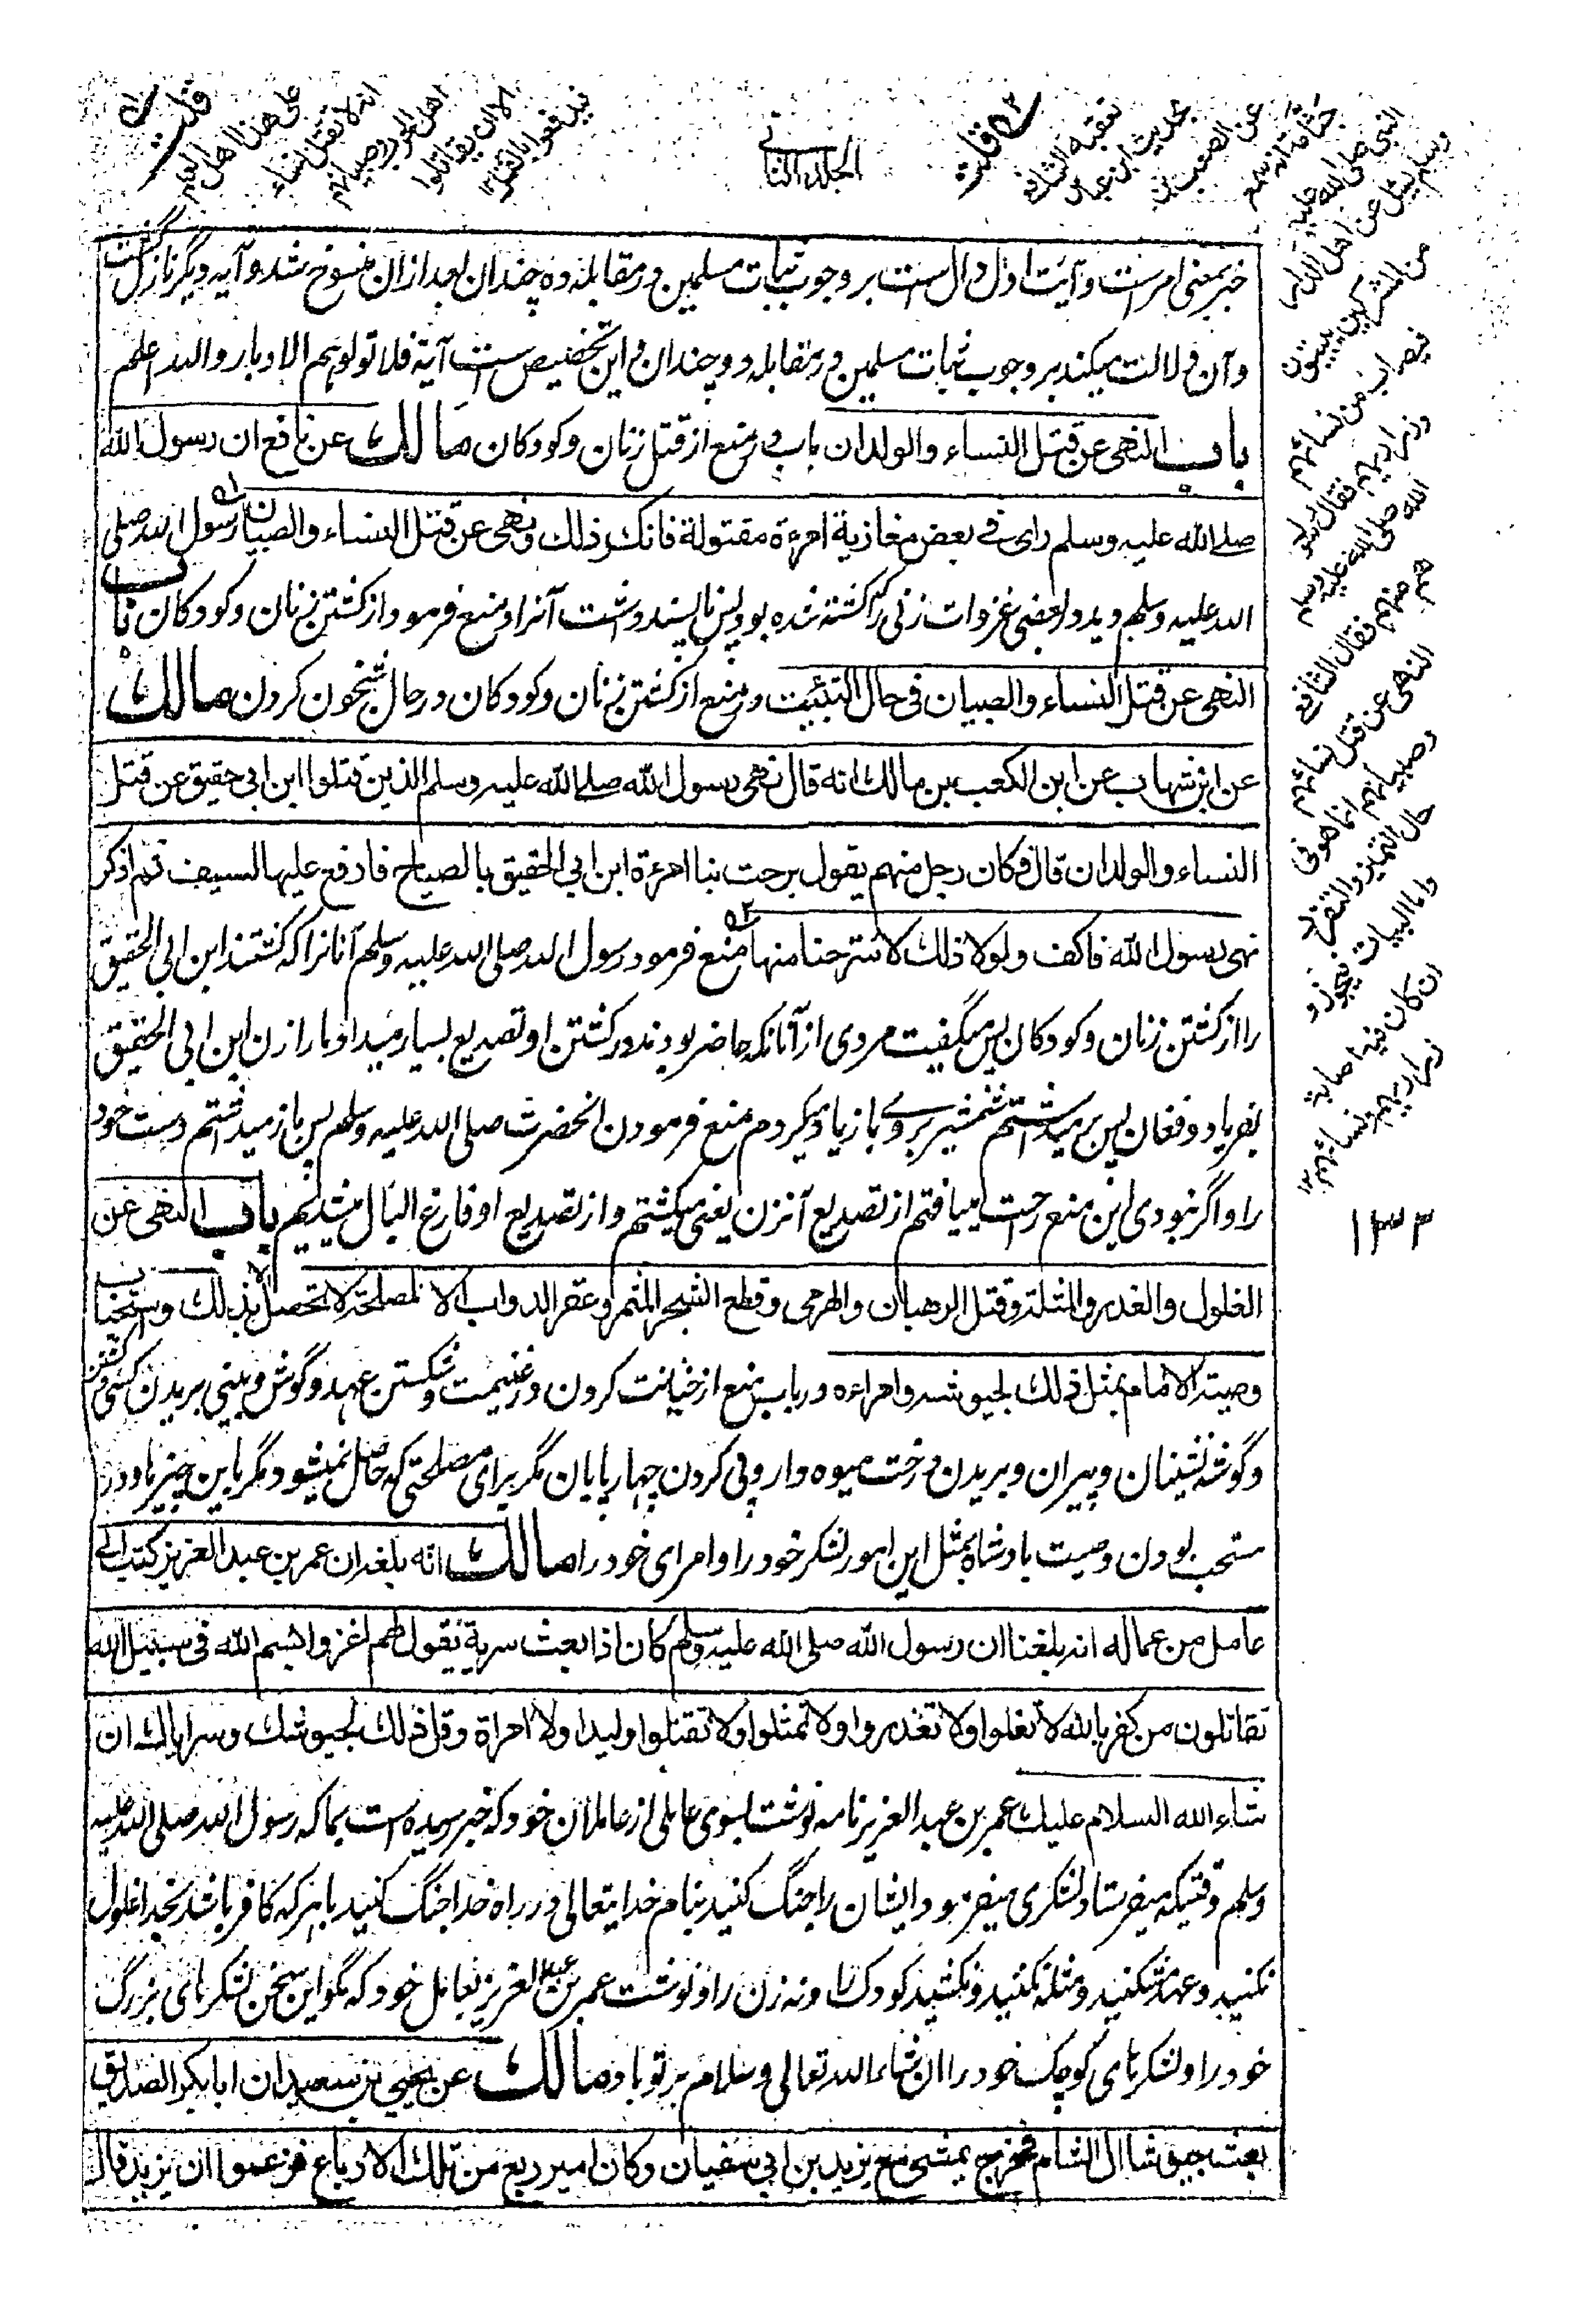 الجلد الثانی
قلت
علی هذا اهل العلم
انه لا تقتل نساء
اهل الحرب وصبیانهم
الا ان یقاتلوا
فیدفعوا بالقتل ۱۲
قلت
تعقبه الشافعی
بحدیث ابن عباس
عن الصعب بن
جثامة انه سمع
النبی صلی الله علیه
وسلم یسئل عن اهل الدار
من المشرکین یبیتون
فیصاب من نسائهم
وذراریهم فقال رسول
الله صلی الله علیه وسلم
هم منهم فقال الشافعی
النهی عن قتل نسائهم
وصبیانهم انما هو فی
حال التمیز والتفرد
واما البیات فیجوز و
ان کان فیه اصابة
ذراریهم ونسائهم ۱۲
۱۳۳
خبر بمعنی امرست و آیت اول دال است بر وجوب ثبات مسلمین در مقابله ده چندان بعد ازان منسوخ شد و آیه دیگر نازل گشت
و آن دلالت میکند بر وجوب ثبات مسلمین در مقابله دو چندان و این تخصیص ست آیة فلا تولوهم الادبار والله اعلم
باب النهی عن قتل النساء والولدان باب در منع از قتل زنان و کودکان مالك عن نافع ان رسول الله
صلے الله علیه وسلم رای فے بعض مغازیة امرءة مقتولة فانکر ذلك ونهی عن قتل النساء والصبیان رسول الله صلی
الله علیه وسلم دید در بعضی غزوات زنی را کشته شده بود پس ناپسند داشت آنرا و منع فرمود از کشتن زنان و کودکان باب
النهی عن قتل النساء والصبیان فی حال التبئیت در منع از کشتن زنان و کودکان در حال شبخون کردن مالك
عن ابن شهاب عن ابن الکعب بن مالك انه قال نهی رسول الله صلے الله علیه وسلم الذین قتلوا ابن ابی حقیق عن قتل
النساء والولدان قال فکان رجل منهم یقول برحت بنا امرءة ابن ابی الحقیق بالصیاح فارفع علیها السیف ثم اذکر
نهی رسول الله فاکف ولولا ذلك لاسترحنا منها منع فرمود رسول الله صلی الله علیه وسلم آنانرا که کشتند ابن ابی الحقیق
را از کشتن زنان و کودکان پس میگفت مردی از آنانکه حاضر بودند در کشتن او تصدیع بسیار میداد ما را زن ابن ابی الحقیق
بفریاد و فغان پس بر میداشتم شمشیر بر وے باز یاد میکردم منع فرمودن انحضرت صلی الله علیه وسلم پس باز میداشتم دست خود
را و اگر نبودی این منع راحت مییافتم از تصدیع آنزن یعنی میکشتم و از تصدیع او فارغ البال میشدیم باب النهی عن
الغلول والغدر والمثلة وقتل الرهبان والهرمی وقطع الشجر المثمر وعقر الدواب الا لمصلحة لا تحصل الا بذلك واستحباب
وصیة الامام بمثل ذلك لجیوشه وامراءه در باب منع از خیانت کردن در غنیمت و شکستن عهد و گوش و بینی بریدن کسی و کشتن
و گوشه نشینان و پیران و بریدن درخت میوه دار و پی کردن چهارپایان مگر برای مصلحتی که حاصل نمیشود مگر باین چیزها و در
مستحب بودن وصیت بادشاه بمثل این امور لشکر خود را و امرای خود را مالك انه بلغه ان عمر بن عبد العزیز کتب الے
عامل من عماله انه بلغنا ان رسول الله صلی الله علیه وسلم کان اذا بعث سریة یقول لهم اغزوا بسم الله فی سبیل الله
تقاتلون من کفر بالله لا تغلوا ولا تغدروا ولا تمثلوا ولا تقتلوا ولیدا ولا امراة وقل ذلك لجیوشك وسرایاك ان
شاء الله السلام علیك عمر بن عبد العزیز نامه نوشت بسوی عاملی از عاملان خود که خبر رسیده است بما که رسول الله صلی الله علیه
وسلم وقتیکه میفرستاد لشکری میفرمود ایشان را جنگ کنید بنام خدایتعالی در راه خدا جنگ کنید با هر که کافر باشد بخدا غلول
نکنید و عهد نشکنید و مثله نکنید و نکشید کودک را و نه زن را و نوشت عمر بن عبد العزیز بعامل خود که بگو این سخن لشکرهای بزرگ
خود را و لشکرهای کوچک خود را ان شاء الله تعالی و سلام بر تو باد مالك عن یحیی بن سعید ان ابا بکر الصدیق
بعث جیوشا الی الشام فخرج یمشی مع یزید بن ابی سفیان وکان امیر ربع من تلك الارباع فزعموا ان یزید قال